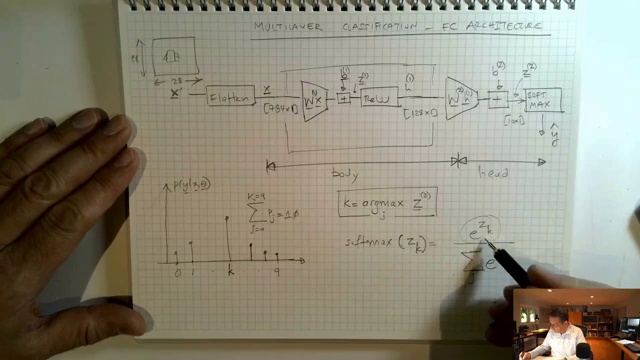 MULTILAYER CLASSIFICATION - FC ARCHITECTURE
28
28
x
Flatten
x
[784x1]
W⁽¹⁾x
b⁽¹⁾
+
z⁽¹⁾
ReLU
h⁽¹⁾
[128x1]
W⁽²⁾h⁽¹⁾
b⁽²⁾
+
z⁽²⁾
[10x1]
SOFT
MAX
ŷ
body
head
p(y|x,θ)
k=9
∑ pⱼ=1.0
j=0
0 1 k 9
k = argmax z⁽²⁾
j
softmax (zₖ) = e^zₖ
∑ e
j